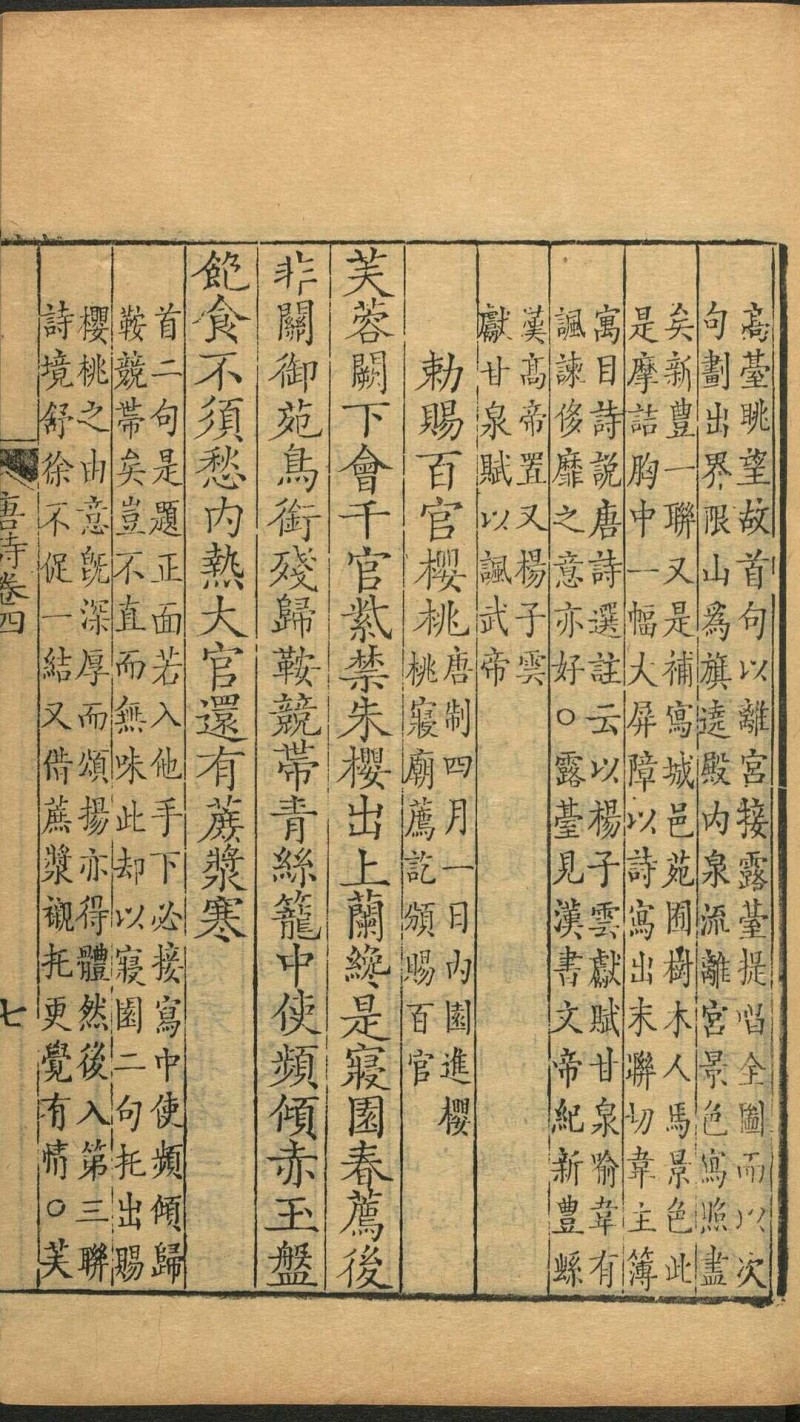 高䑓眺望故首句以離宮接露䑓提唱全圖而以次
句劃出界限山爲旗遶殿内泉流離宮景色寫照盡
矣新豊一聯又是補寫城邑苑囿樹木人馬景色此
是摩詰胸中一幅大屏障以詩寫出末聯切韋主簿
寓目詩說唐詩選註云以楊子雲獻賦甘泉喻韋有
諷諫侈靡之意亦好○露䑓見漢書文帝紀新豊縣
漢高帝置又楊子雲
獻甘泉賦以諷武帝
勅賜百官櫻桃
唐制四月一日内園進櫻
桃寢廟薦訖頒賜百官
芙蓉闕下會千官紫禁朱櫻出上蘭纔是寢園春薦後
非關御苑鳥銜殘歸鞍競帶青絲籠中使頻傾赤玉盤
飽食不須愁内熱大官還有蔗漿寒
首二句是題正面若入他手下必接寫中使頻傾歸
鞍競帶矣豈不直而無味此却以寢園二句托出賜
櫻桃之由意旣深厚而頌揚亦得體然後入第三聯
詩境舒徐不促一結又借蔗漿襯托更覺有情○芙
唐詩卷四
七